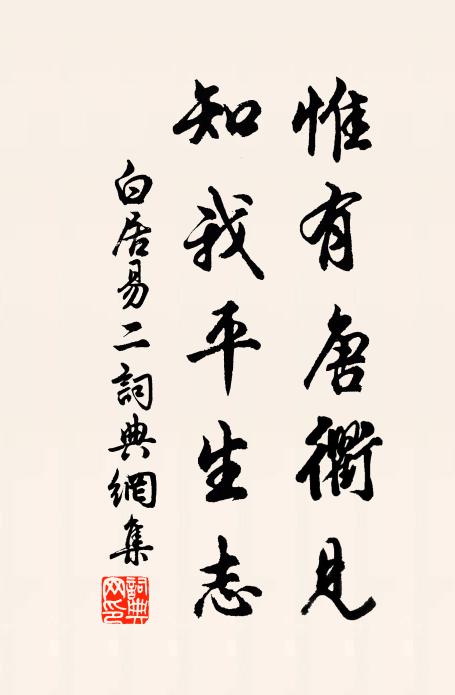 惟有唐衢見
知我平生志
白居易二詞典網集
詞典網印